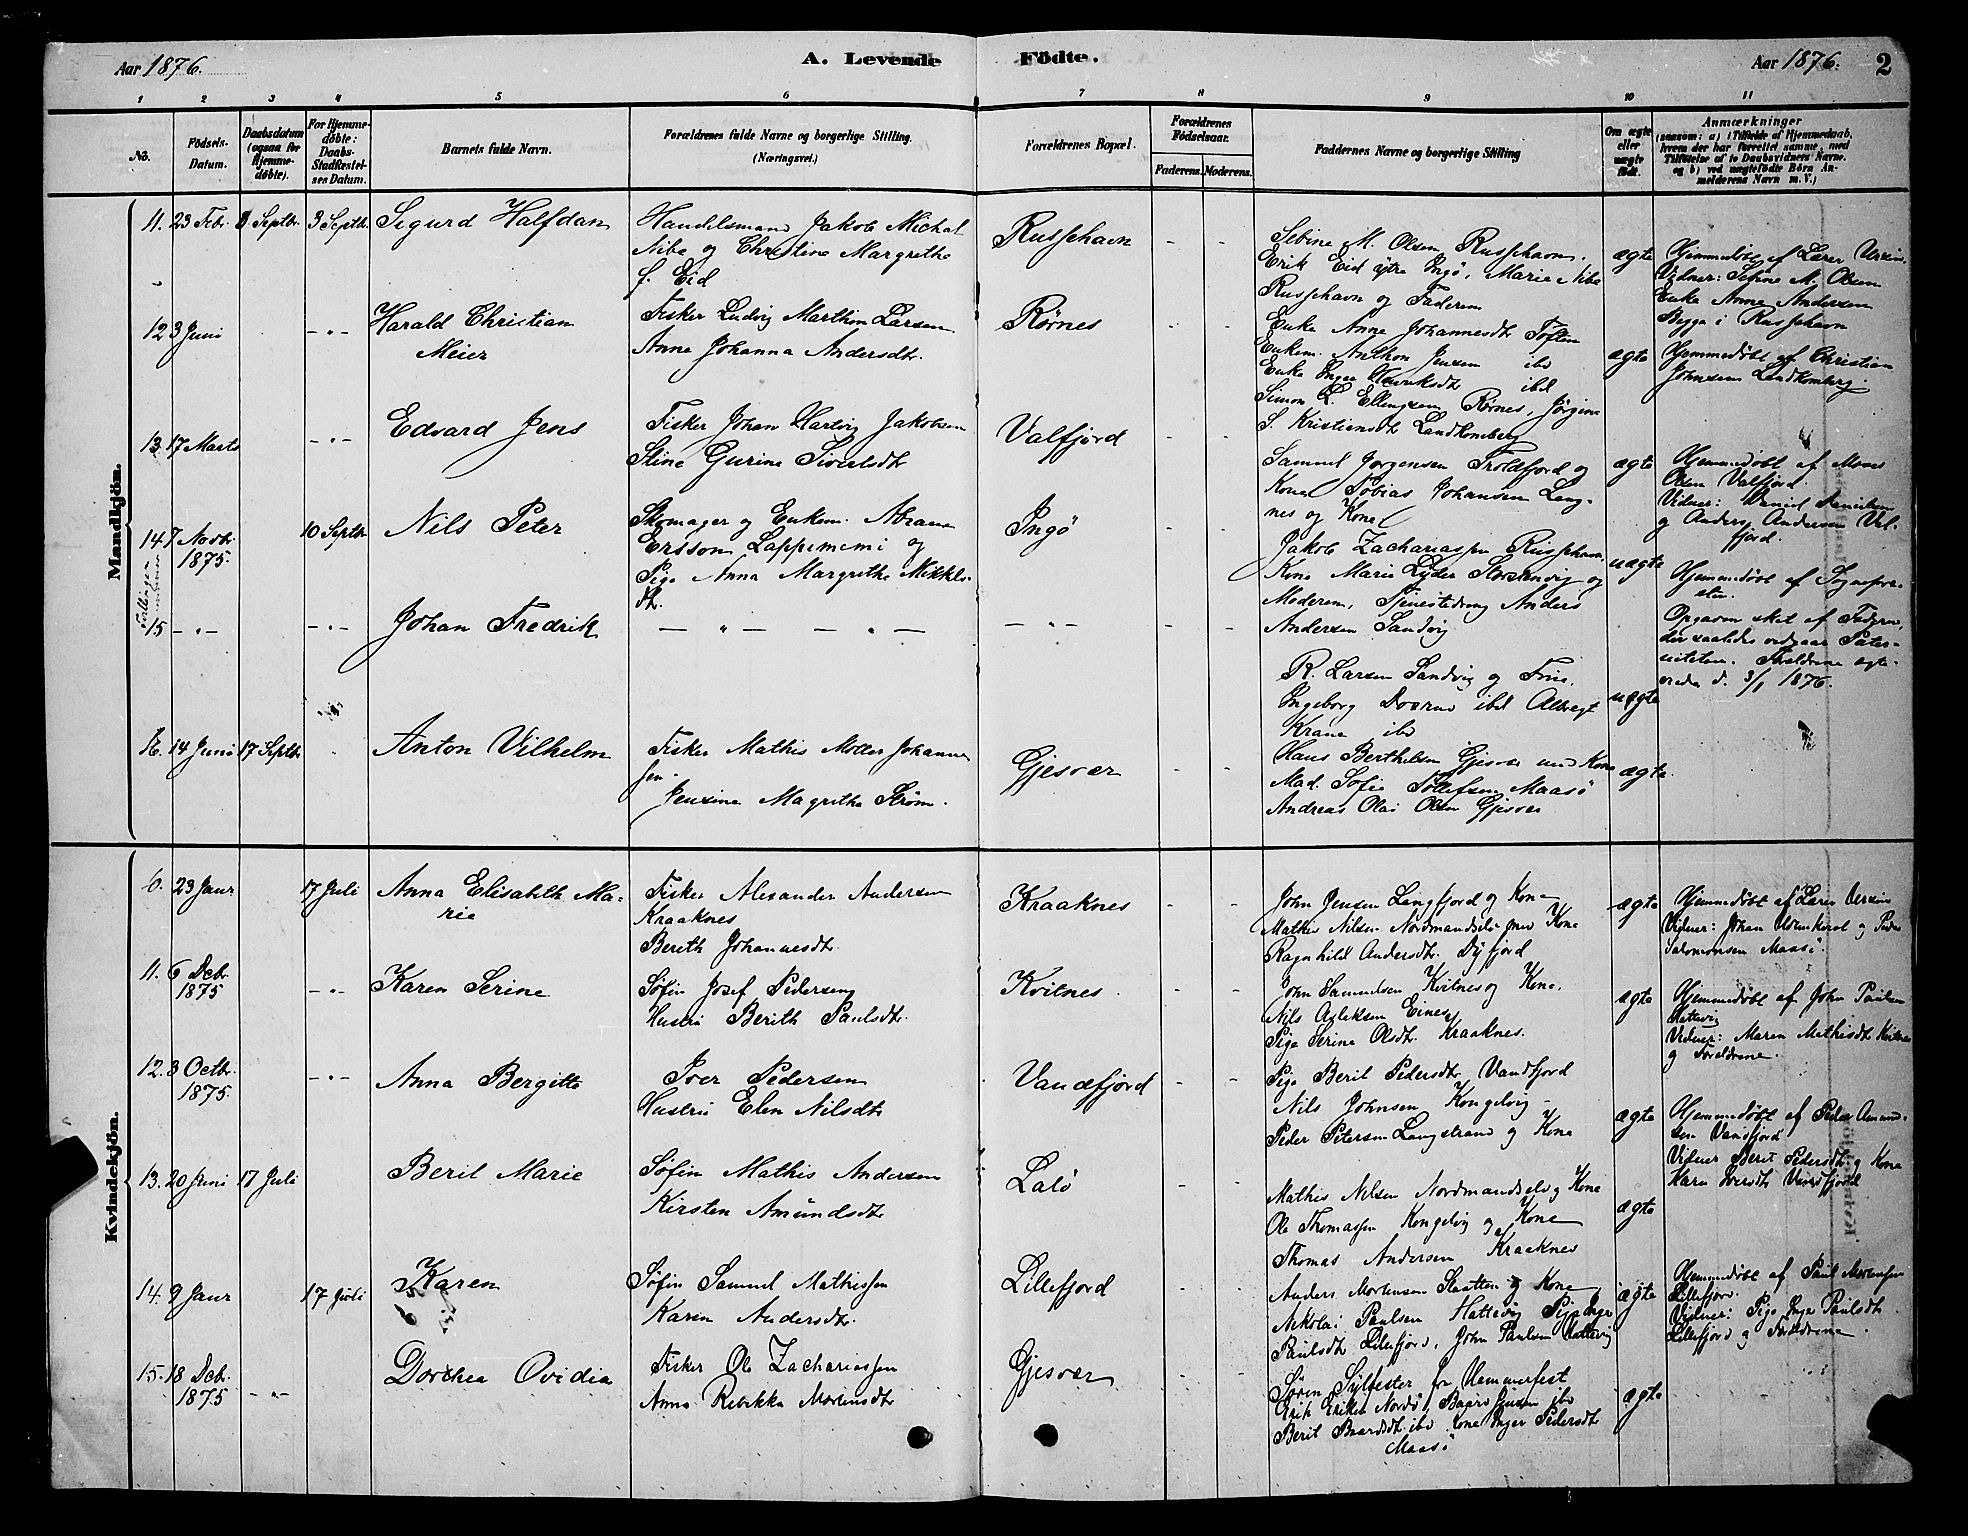 Aar 1876.
A. Levende Födte.
Aar 1876. 2
1 2 3 4 5 6 7 8 9 10 11
No.
Födsels-
Datum.
Daabsdatum
(ogsaa for
Hjemme-
døbte).
For Hjemme-
døbte:
Daabs-
Stadfæstel-
ses Datum.
Barnets fulde Navn.
Forældrenes fulde Navne og borgerlige Stilling.
(Næringsvei.)
Forældrenes Bopæl.
Forældrenes
Fødselsaar.
Faderens. Moderens.
Faddernes Navne og borgerlige Stilling
Om ægte
eller
uægte
født.
Anmærkninger
(saasom: a) i Tilfælde af Hjemmedaab,
hvem der har forrettet samme, med
Tilføielse af to Daabsvidners Navne.
og b) ved uægtefödte Börn An-
melderens Navn m. V.)
Mandkjön.
11. 23 Febr. 3 Septbr. 3 Septbr. Sigurd Halfdan
Handelsmand Jakob Michal
Niba og Christine Margrethe
f. Eid
Russehavn
Sebine M. Olsen Russehavn.
Erik Eid ytre Ingø, Marie Niba
Russehavn og Faderen
ægte
Hjemmedøbt af Lærer
Vidner: Sefine M. Olsen
Enke Anne Andersen
Begge i Russehavn
12 3 Juni - " - Harald Christian
Meier
Fisker Ludvig Marthin Larsen
Anne Johanna Andersdt.
Rørnes
Enke Anne Johannesdt Toften
Enkem. Anthon Jensen ibd
Enke Inger Henriksdt ibd
Simon L. Ellingsen Rørnes, Jørgine
S. Kristiensdt Landkomberg
ægte
Hjemmedøbt af Christian
Johnsen Landkomberg.
13. 17 Marts - " - Edvard Jens
Fisker Johan Hartvig Jakobsen
Stine Gurine Siversdt
Valfjord
Samuel Jørgensen Troldfjord og
Kone Tobias Johansen Lang-
nes og Kone
ægte
Hjemmedøbt af Moses
Olsen Valfjord.
Vidner: Daniel
og Anders Andersen Val-
fjord.
14 7 Novbr. 1875. 10 Septbr Nils Peter
Skomager og Enkem. Abram
Ersson Lappememi og
Pige Anna Margrethe Mikkls-
dt.
Ingö
Jakob Zachariassen Russehavn,
Kone Marie Lyder Storsandvig og
Moderen, Tjenestedreng Anders
Andersen Sandvig
uægte
Hjemmedøbt af Sognepræ-
sten.
Tvillinger
15 - " - - " - Johan Fredrik
- " - - " -
- " -
R. Larsen Sandvig og Frue.
Ingeborg ibd Albregt
Krane ibd
uægte
Opgaven sket af Faderen,
der saaledes vedgaar Pater-
niteten. Forældrene ægte-
viede d. 3/1 1876.
16. 14 Juni 17 Septbr Anton Vilhelm
Fisker Mathis Møller Johannes
sen
Jensine Magrethe Strøm.
Gjesvær
Hans Berthelsen Gjesvær med Kone
Mad. Sofie Tollefsen Maasö
Andreas Olai Olsen Gjesvær
ægte.
Kvindekjön.
10. 23 Janr 17 Juli Anna Elisabeth Ma-
rie
Fisker Alexander Andersen
Kraaknes
Berith Johannesdt.
Kraaknes
John Jensen Langfjord og Kone
Mathis Nilsen Nordmandselv med Kone
Ragnhild Andersdt. Dyfjord
ægte
Hjemmedøbt af Lærer
Vidner: Johan og Peder
Salomonsen Maasö.
11. 6 Decbr. 1875 - " - Karen Serine
Søfin Josef Pedersen
Hustru Berith Paulsdt.
Kvitnes
John Samuelsen Kvitnes og Kone.
Nils Aslaksen Eines
Pige Serine Olsdt. Kraaknes.
ægte
Hjemmedøbt af John Paulsen
Hattevig
Vidner: Maren Mathisdt. Kvitnes
og Forældrene.
12. 3 Octbr. 1875. - " - Anna Bergitte
Iver Pedersen
Hustru Elen Nilsdt
Vandfjord
Pige Berit Pedersdt. Vandfjord
Nils Johnsen Kongelvig
Peder Petersen Langstrand og Kone
ægte
Hjemmedøbt af Peder Amund-
sen Vandfjord
Vidner Beret Pedersdt. og Kone
Karen Iversdt Vandfjord
13. 20 Juni 17 Juli Beril Marie
Søfin Mathis Andersen
Kirsten Amundsdt.
Lalö
Mathis Nilsen Nordmandselv og Kone
Ole Thomassen Kongelvig og Kone
Thomas Andersen Kraaknes
ægte
14. 9 Janr 17 Juli Karen
Søfin Samuel Mathissen
Karen Andersdt.
Lillefjord
Anders Mortensen Slaatten og Kone
Nikolai Paulsen Hattevig Pige Inger
Paulsdt Lillefjord, John Paulsen Hattevig
ægte
Hjemmedøbt af Paul Mortensen
Lillefjord.
Vidner: Pige Inga Paulsdt.
Lillefjord og Forældrene
15. 18 Decbr. 1875 - " - Dorthea Ovidia
Fisker Ole Zachariassen
Anne Rebekka Mortensdt
Gjesvær
Søren Sylfester fra Hammerfest
Erik Eriksen Nordvåg, Baard Jensen ibd
Berit Baardsdt. ibd Kone Inger Pedersdt
Maasö
ægte